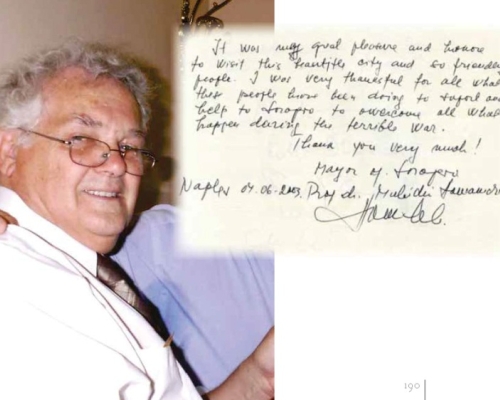 It was my great pleasure and honore
to wisit this beautifes city and so friendly
people. I was very thankful for all what
these people have been doing to suport and
help to Sarajevo to overcome all what
happen during the terrible war.
Thank you very much!
Mayor of Sarajevo
Naples 04.06.2003. Prof dr.
190